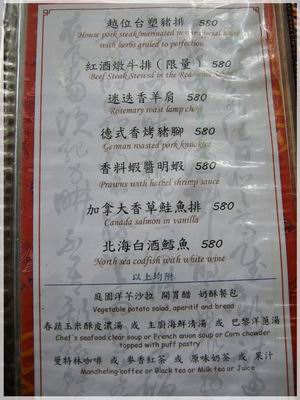 越位台塑豬排 580
House pork steak/marinated in our special sauce
with herbs grilled to perfection
紅酒燉牛排（限量） 580
Beef Steak Stewed in the Red Wine
迷迭香羊肩 580
Rosemary roast lamp chop
德式香烤豬腳 580
German roasted pork knuckle
香料蝦醬明蝦 580
Prawns with herbel shrimp sauce
加拿大香草鮭魚排 580
Canada salmon in vanilla
北海白酒鱈魚 580
North sea codfish with white wine
以上均附
庭園洋芋沙拉 開胃醋 奶酥餐包
Vegetable potato salad, aperitif and bread
春蔬玉米酥皮濃湯 或 主廚海鮮清湯 或 巴黎洋蔥湯
Chef's seafood clear soup or French onion soup or Corn chowder
topped with puff pastry
曼特林咖啡 或 麥香紅茶 或 原味奶茶 或 果汁
Mandheling coffee or Black tea or Milk tea or Juice